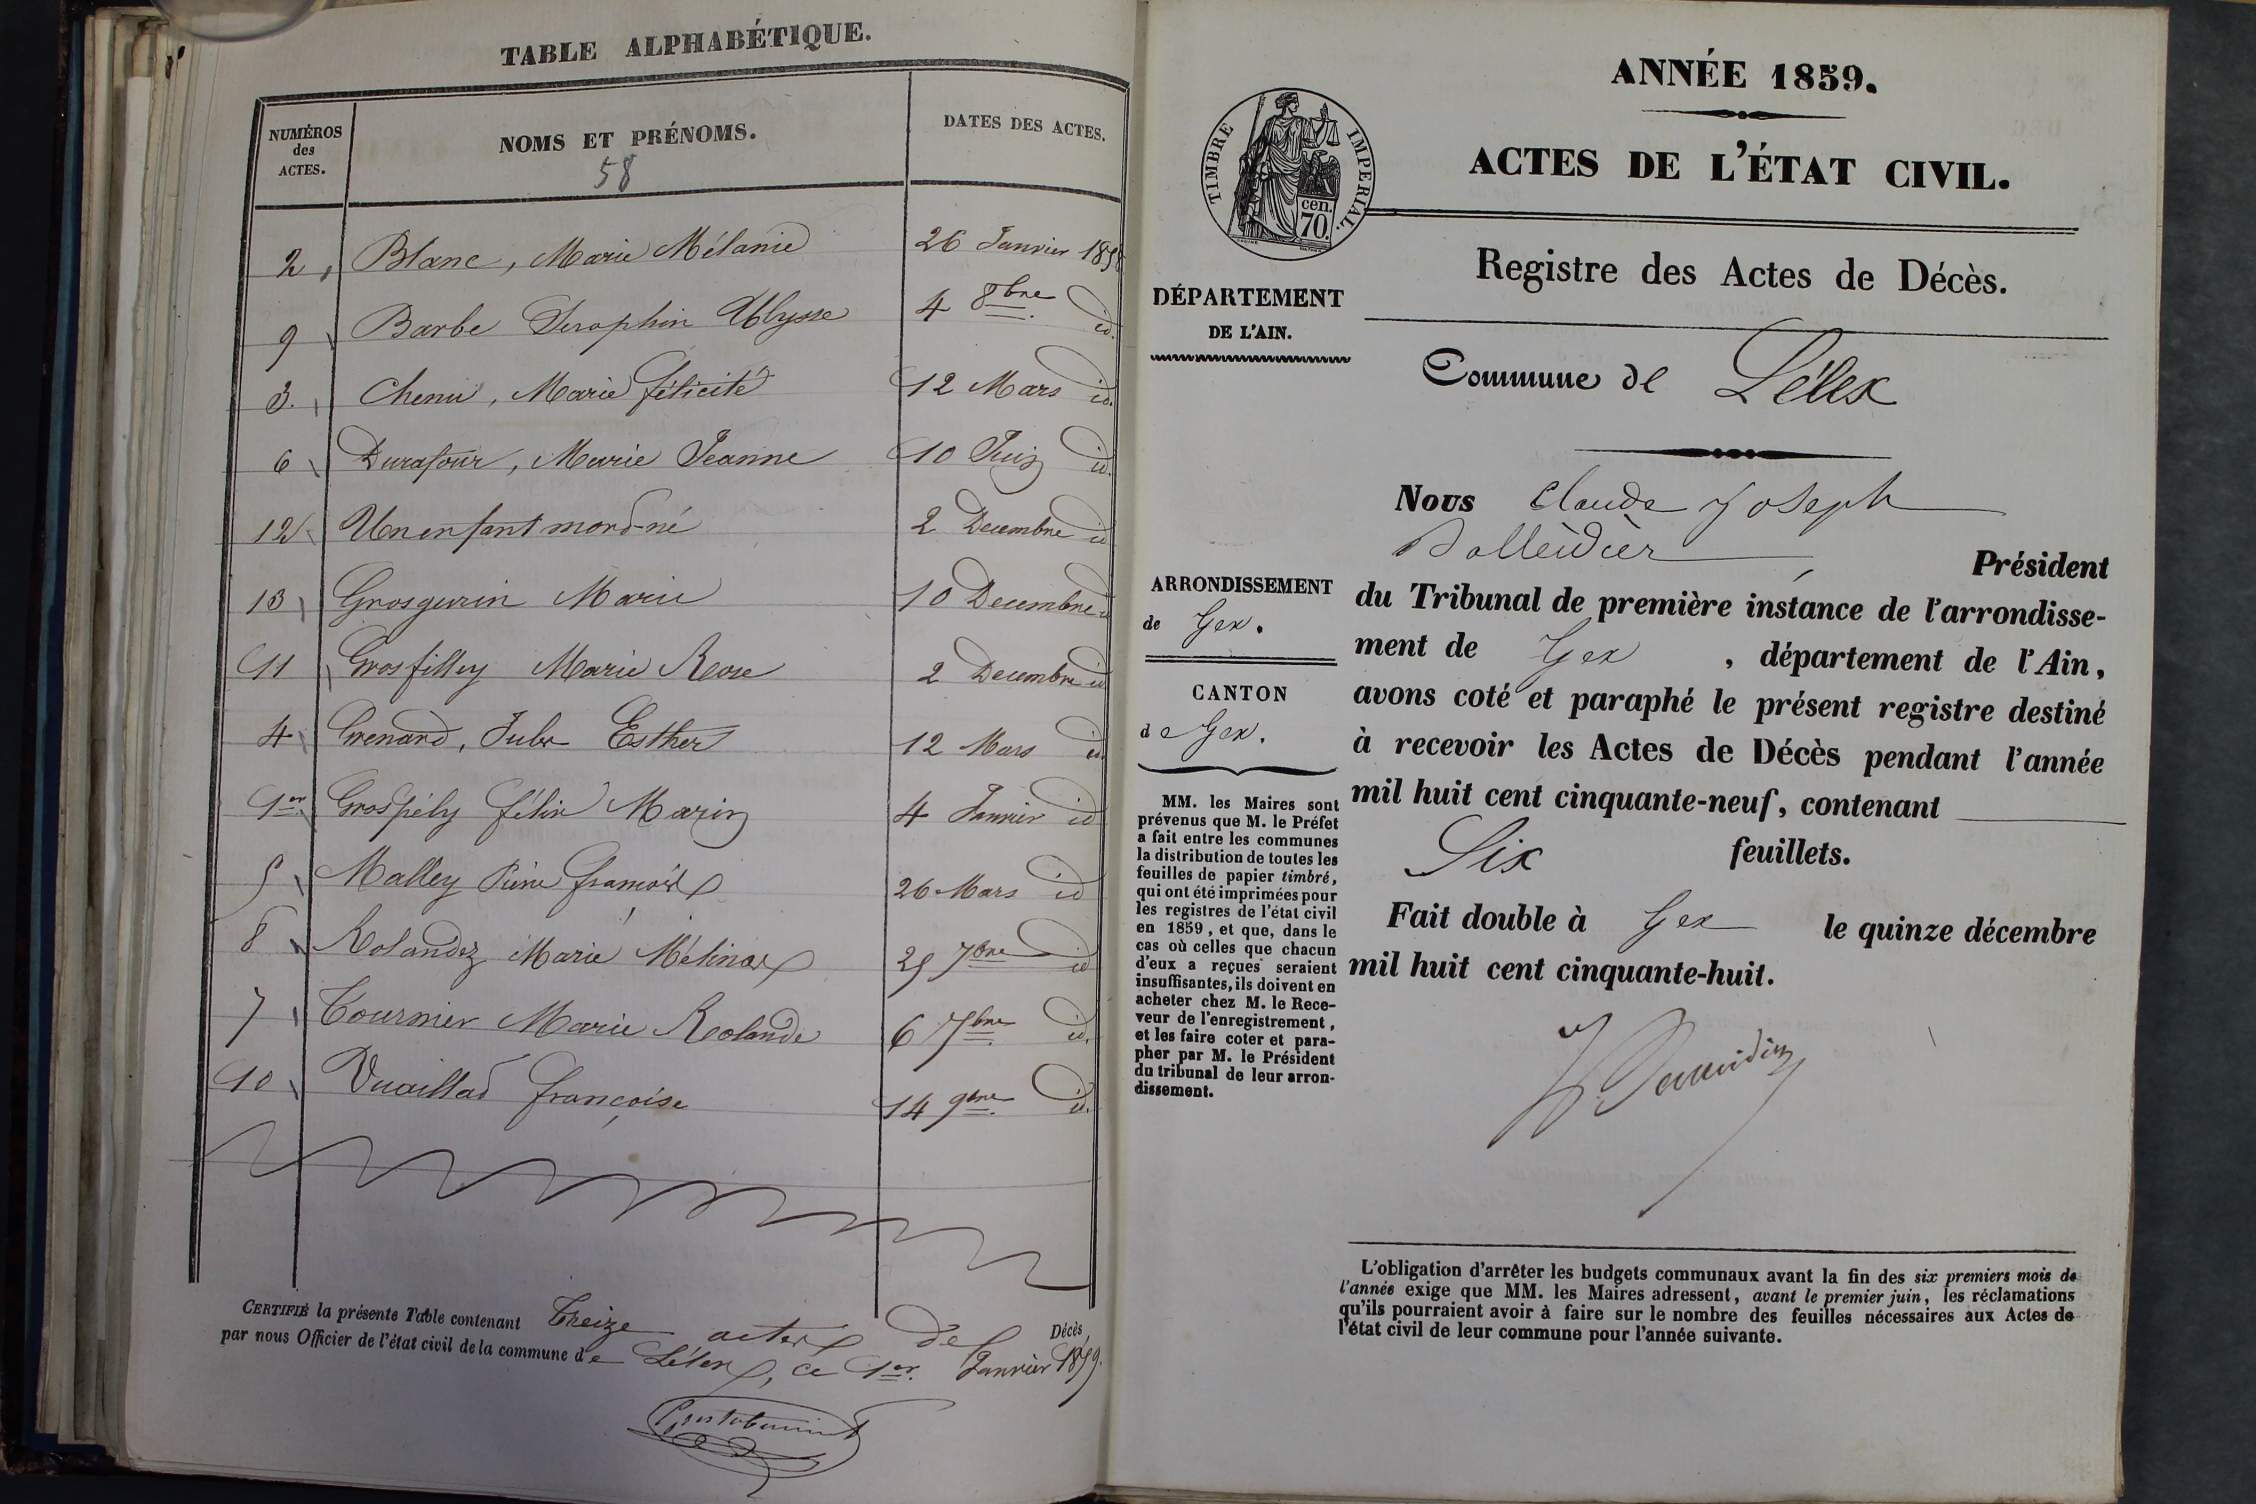 TABLE ALPHABÉTIQUE.
NUMÉROS
des
ACTES.
NOMS ET PRÉNOMS.
58
DATES DES ACTES.
2 Blanc, Marie Mélanie 26 Janvier 1858
9 Barbe Séraphin Ulysse 4 8bre id.
3. Chenu, Marie félicité 12 Mars id.
6 Durafour, Marie Jeanne 10 Juin id.
12 Un enfant mord-né 2 Decembre id
13 Grosgurin Marie 10 Decembre id
11 Grosfilley Marie Rose 2 Decembre id
4 Grenard, Esther 12 Mars id.
1er félix Marin 4 Janvier id
5 Malley Pierre françois 26 Mars id
8 Rolandez Marie Mélina 25 7bre id
7 Tournier Marie Rolande 6 7bre id.
10 Vuaillad françoise 14 9bre id.
CERTIFIÉ la présente Table contenant Treize actes de Décès
par nous Officier de l'état civil de la commune de Lélex, ce 1er Janvier 1859.
ANNÉE 1859.
ACTES DE L'ÉTAT CIVIL.
TIMBRE IMPERIAL.
cen.
70.
Registre des Actes de Décès.
DÉPARTEMENT
DE L'AIN.
Commune de Lélex
Nous Claude Joseph
Président
ARRONDISSEMENT
de Gex.
CANTON
de Gex.
MM. les Maires sont
prévenus que M. le Préfet
a fait entre les communes
la distribution de toutes les
feuilles de papier timbré,
qui ont été imprimées pour
les registres de l'état civil
en 1859, et que, dans le
cas où celles que chacun
d'eux a reçues seraient
insuffisantes, ils doivent en
acheter chez M. le Rece-
veur de l'enregistrement,
et les faire coter et para-
pher par M. le Président
du tribunal de leur arron-
dissement.
du Tribunal de première instance de l'arrondisse-
ment de Gex, département de l'Ain,
avons coté et paraphé le présent registre destiné
à recevoir les Actes de Décès pendant l'année
mil huit cent cinquante-neuf, contenant
Six feuillets.
Fait double à Gex le quinze décembre
mil huit cent cinquante-huit.
L'obligation d'arrêter les budgets communaux avant la fin des six premiers mois de
l'année exige que MM. les Maires adressent, avant le premier juin, les réclamations
qu'ils pourraient avoir à faire sur le nombre des feuilles nécessaires aux Actes de
l'état civil de leur commune pour l'année suivante.